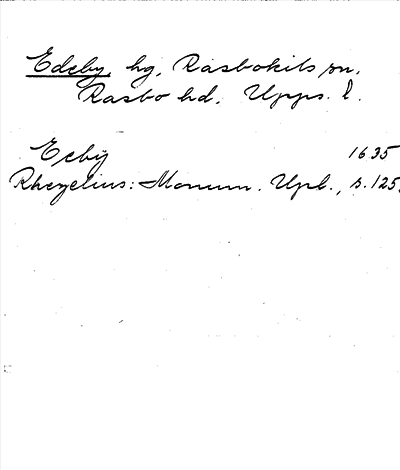 Edeby, hg, Rasbokils sn,
Rasbo hd, Upps. l.
Ecby 1635
Rhezelius: Monum. Upl., s. 125.